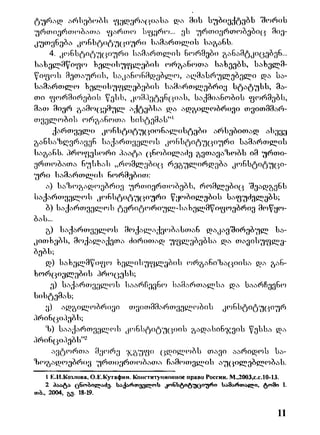 ტურად არსებობს ფედერაციასა და მის სუბიექტებს შორის
ურთიერთობათა ფართო სფერო... ეს ურთიერთობებიც მიე-
კუთვნება კონსტიტუციური სამართლის საგანს.
4. კონსტიტუციური სამართლის ნორმები განამტკიცებენ...
სახელმწიფო ხელისუფლების ორგანოთა სახეებს, სახელმ-
წიფოს მეთაურის, საკანონმდებლო, აღმასრულებელი და სა-
სამართლო ხელისუფლებების სამართლებრივ სტატუსს, მა-
თი ფორმირების წესს, კომპეტენციას, საქმიანობის ფორმებს,
მათ მიერ გამოცემულ აქტებსა და ადგილობრივი თვითმმარ-
თველობის ორგანოთა სისტემას"1
ქართველი კონსტიტუციონალისტები არსებითად ასევე
განსაზღვრავენ საქართველოს კონსტიტუციური სამართლის
საგანს. პროფესორი პაატა ცნობილაძე გვთავაზობს იმ ურთი-
ერთობათა ნუსხას „რომლებიც რეგულირდება კონსტიტუცი-
ური სამართლის ნორმებით:
ა) საზოგადოებრივ ურთიერთობებს, რომლებიც შეადგენს
საქართველოს კონსტიტუციური წყობილების საფუძვლებს;
ბ) საქართველოს ტერიტორიულ-სახელმწიფოებრივ მოწყო-
ბას...
გ) საქართველოს მოქალაქეობასთან დაკავშირებულ სა-
კითხებს, მოქალაქეთა ძირითად უფლებებსა და თავისუფლე-
ბებს;
დ) სახელმწიფო ხელისუფლების ორგანიზაციისა და გან-
ხორციელების პროცესს;
ე) საქართველოს საარჩევნო სამართალსა და საარჩევნო
სისტემას;
ვ) ადგილობრივი თვითმმართველობის კონსტიტუციურ
პრინციპებს;
ზ) საქართველოს კონსტიტუციის გადასინჯვის წესსა და
პრინციპებს"2
ავტორთა მეორე ჯგუფი ცდილობს თავი აარიდოს სა-
ზოგადოებრივ ურთიერთობათა ჩამოთვლის აუცილებლობას.
1 Е.И.Козлова, О.Е.Кутафин. Конституционное право России. М.,2003,с.с.10-13.
2 პაატა ცნობილაძე. საქართველოს კონსტიტუციური სამართალი, ტომი I.
თბ., 2004, გვ. 18-19.
11